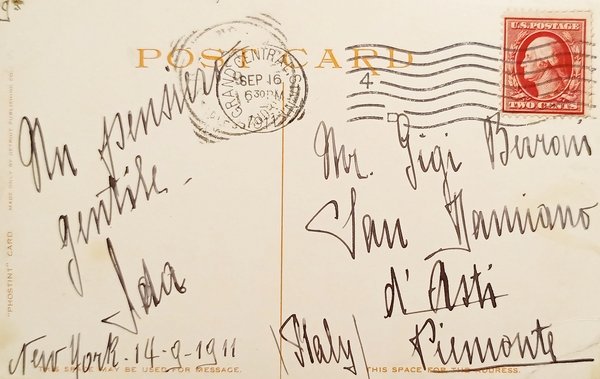 POST CARD
GRAND CENTRAL STA.
SEP 16
630PM
1911
4
U.S. POSTAGE
TWO CENTS
Un pensiero
gentile -
Ida
New York - 14-9-1911
Mr. Gigi Berroni
San Damiano
d'Asti
(Italy) Piemonte
"PHOSTINT" CARD
MADE ONLY BY DETROIT PUBLISHING CO.
THIS SPACE MAY BE USED FOR MESSAGE.
THIS SPACE FOR THE ADDRESS.